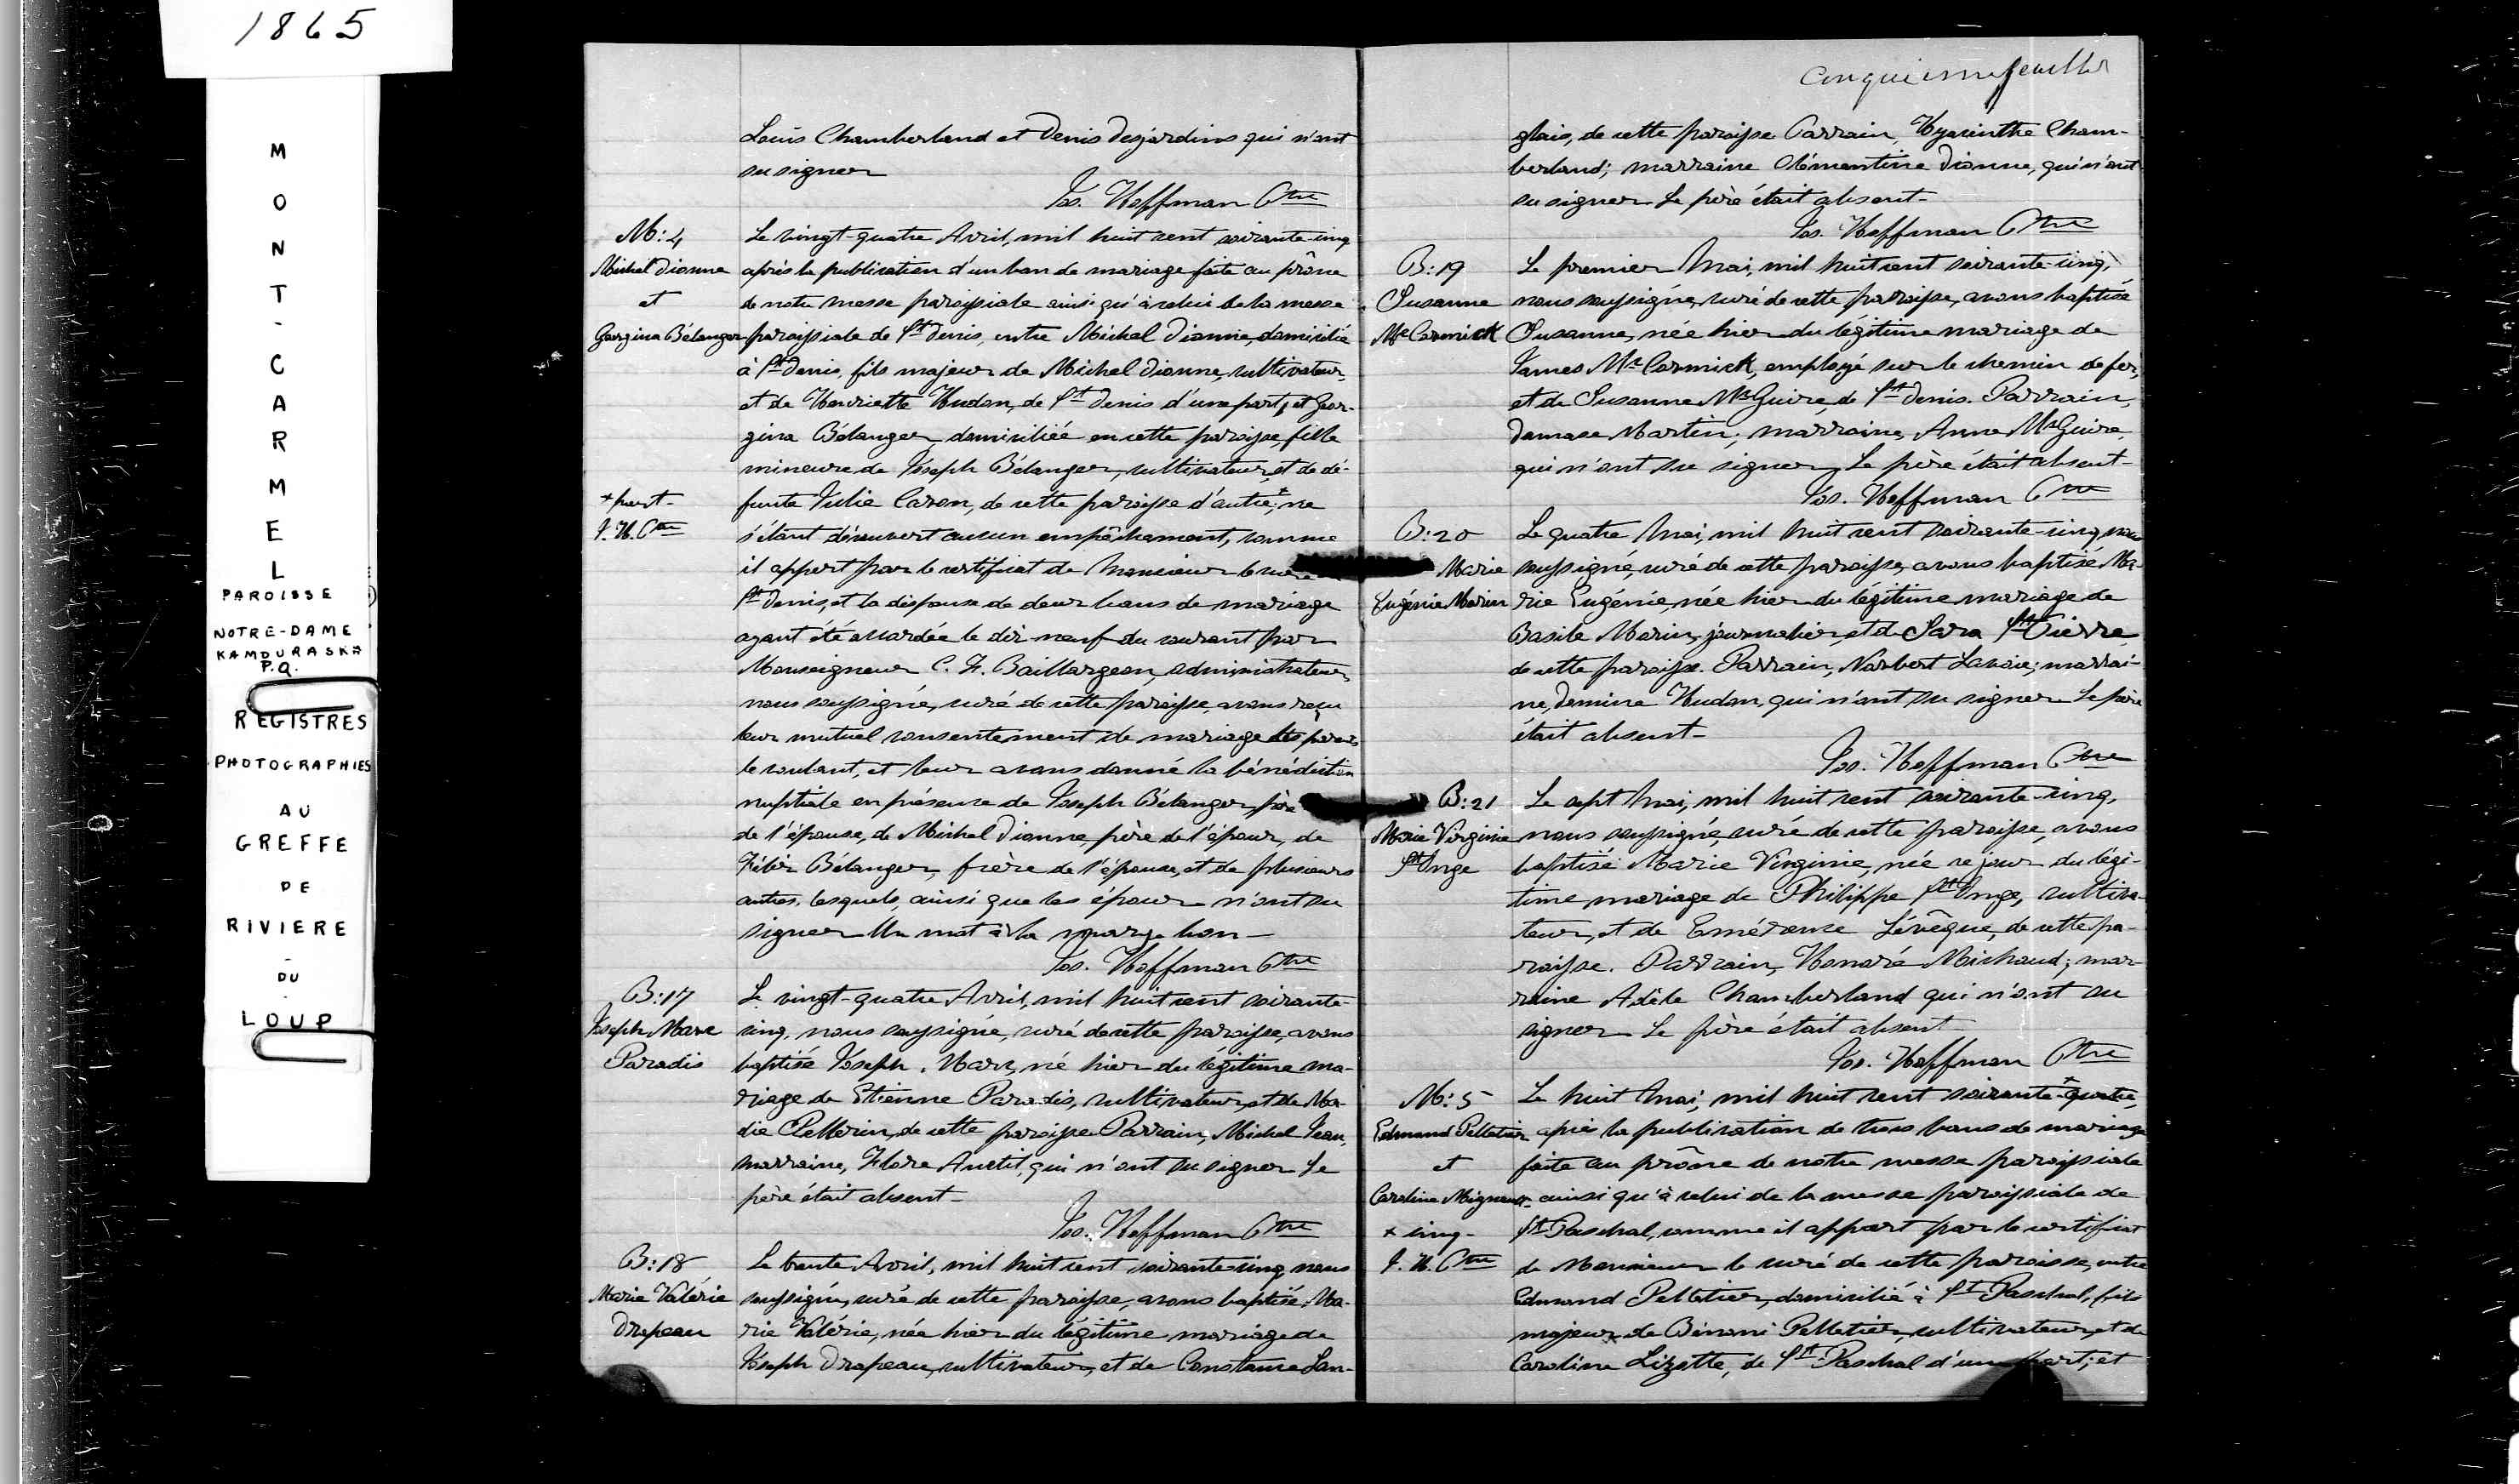 1865
MONT-CARMEL
PAROISSE
NOTRE-DAME
KAMOURASKA
P.Q.
REGISTRES
PHOTOGRAPHIES
AU
GREFFE
DE
RIVIERE
-
DU
-
LOUP
Louis Chamberland et Denis Desjardins qui n'ont
su signer
Jos. Hoffman Ptre
M: 4
Michel Dionne
et
Georgina Bélanger
* part-
J. H. Ptre
Le vingt-quatre Avril, mil huit cent soixante-cinq
après la publication d'un ban de mariage faite au prône
de notre messe paroissiale ainsi qu'à celui de la messe
paroissiale de St Denis, entre Michel Dionne, domicilié
à St Denis, fils majeur de Michel Dionne, cultivateur,
et de Henriette Hudon, de St Denis d'une part; et Geor-
gina Bélanger, domiciliée en cette paroisse, fille
mineure de Joseph Bélanger, cultivateur, et de dé-
funte Julie Caron, de cette paroisse d'autre*; ne
s'étant découvert aucun empêchement, comme
il appert par le certificat de Monsieur le curé
St Denis, et la dispense de deux bans de mariage
ayant été accordée le dix-neuf du courant par
Monseigneur C. F. Baillargeon, administrateur,
nous soussigné, curé de cette paroisse, avons reçu
leur mutuel consentement de mariage les parents
le voulant, et leur avons donné la bénédiction
nuptiale en présence de Joseph Bélanger, père
de l'épouse, de Michel Dionne, père de l'époux, de
Félix Bélanger, frère de l'épouse, et de plusieurs
autres, lesquels, ainsi que les époux n'ont su
signer Un mot à la marge bon-
Jos. Hoffman Ptre
B: 17
Joseph Marc
Paradis
Le vingt-quatre Avril, mil huit cent soixante-
cinq, nous soussigné, curé de cette paroisse, avons
baptisé Joseph, Marc, né hier du légitime ma-
riage de Etienne Paradis, cultivateur, et de Ma-
rie Pellerin, de cette paroisse Parrain, Michel Jean,
marraine, Flore Anctil, qui n'ont su signer Le
père était absent-
Jos. Hoffman Ptre
B: 18
Marie Valérie
Drapeau
Le trente Avril, mil huit cent soixante-cinq nous
soussigné, curé de cette paroisse, avons baptisé, Ma-
rie Valérie, née hier du légitime mariage de
Joseph Drapeau, cultivateur, et de Constance Lan-
Cinquieme feuillet
glais, de cette paroisse Parrain, Hyacinthe Cham-
berland; marraine Clémentine Dionne, qui n'ont
su signer Le père était absent-
Jos. Hoffman Ptre
B: 19
Susanne
Mc Cormick
Le premier Mai, mil huit cent soixante-cinq,
nous soussigné, curé de cette paroisse, avons baptisé
Susanne, née hier du légitime mariage de
James Mc Cormick, employé sur le chemin de fer,
et de Susanne McGuire, de St Denis. Parrain,
Damase Martin; marraine, Anne McGuire,
qui n'ont su signer Le père était absent-
Jos. Hoffman Ptre
B: 20
Marie
Eugénie Morin
Le quatre Mai, mil huit cent soixante-cinq, nous
soussigné, curé de cette paroisse, avons baptisé Ma-
rie Eugénie, née hier du légitime mariage de
Basile Morin, journalier, et de Sara St Pierre,
de cette paroisse. Parrain, Norbert Lavoie; marrai-
ne, Hudon, qui n'ont su signer Le père
était absent-
Jos. Hoffman Ptre
B: 21
Marie Virginie
St Onge
Le sept Mai, mil huit cent soixante-cinq,
nous soussigné, curé de cette paroisse, avons
baptisé Marie Virginie, née ce jour du légi-
time mariage de Philippe St Onge, cultiva-
teur, et de Lévêque, de cette pa-
roisse. Parrain, Honoré Michaud; mar-
raine Adèle Chamberland qui n'ont su
signer Le père était absent
Jos. Hoffman Ptre
M: 5
Edmond Pelletier
et
Caroline Mignault
* cinq-
J. H. Ptre
Le huit Mai, mil huit cent soixante-*quatre,
après la publication de trois bans de mariage
faite au prône de notre messe paroissiale
ainsi qu'à celui de la messe paroissiale de
St Paschal, comme il appert par le certificat
de Monsieur le curé de cette paroisse, entre
Edmond Pelletier, domicilié à St Paschal, fils
majeur de Bénoni Pelletier, cultivateur, et de
Caroline Lizotte, de St Paschal d'une part; et